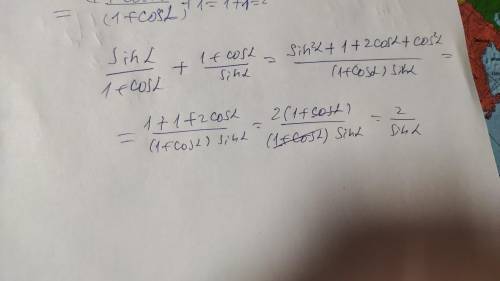 = (1+cosα) + 1 = 1+1=2
sinα/(1+cosα) + (1+cosα)/sinα = (sin²α+1+2cosα+cos²α)/((1+cosα) sinα) =
= (1+1+2cosα)/((1+cosα) sinα) = 2(1+cosα)/((1+cosα) sinα) = 2/sinα